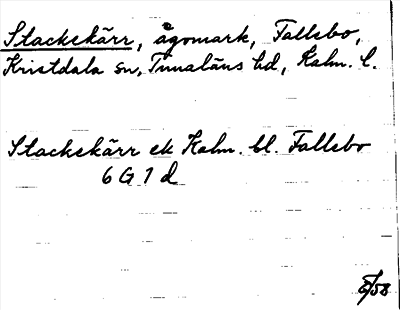 Stackekärr, ägomark, Fallebo,
Kristdala sn, Tunaläns hd, Kalm. l.
Stackekärr ek Kalm. bl. Fallebo
6 G 1 d
8/58